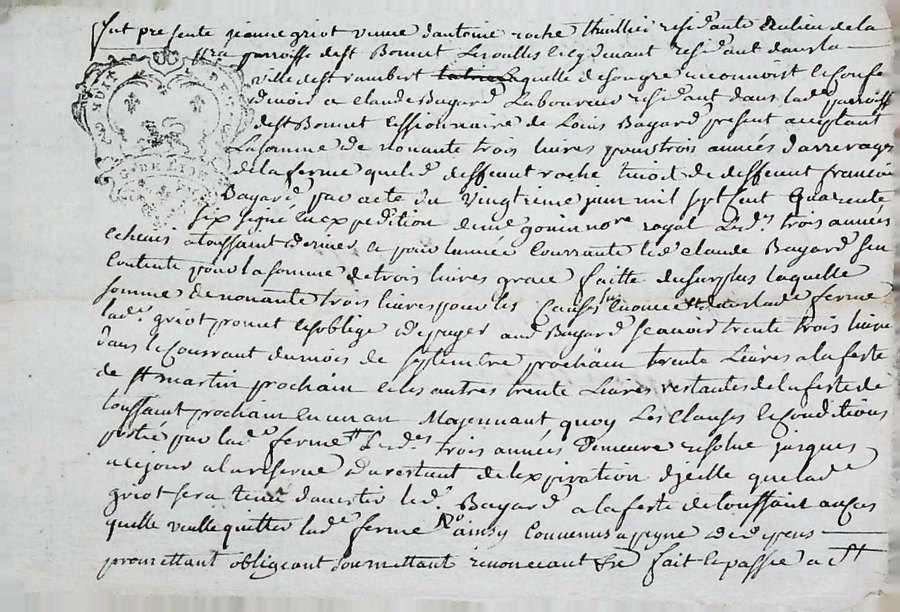 fut presente jeanne griot veuve d'antoine roche thuillier residante du lieu de la
parroisse de st Bonnet Les oulles et cy devant residant dans la
ville de st rambert laquelle de son gré reconnoist et confesse
devoir a claude Bayard Laboureur residant dans lad^e parroisse
de st Bonnet cessionnaire de Louis Bayard present acceptant
La somme de nonante trois livres pour trois années d'arrerages
de la ferme que led deffeunt roche tenoit de deffeunt francois
Bayard par acte du vingtieme juin mil sept cent quarente
six signé en expedition no^re royal Lesd^s trois années
echeües a toussaint dernier et pour l'année courrante led claude Bayard s'en
contente pour la somme de trois livres grace faitte du surplus laquelle
somme de nonante trois livres pour les causes lad^e ferme
lad^e griot promet et s'oblige de payer aud Bayard scavoir trente trois livres
dans le courrant du mois de septembre prochain trente Livres a la feste
de st martin prochain et les autres trente Livres restantes de la feste de
toussaint prochain en un an Moyennant quoy Les clauses et conditions
portée par lad^e ferme lesd^es trois années Demeure resolue jusques
a ce jour a la reserve du restant de l'expiration d'jcelle que lad^e
griot sera tenue d'avertir led^t Bayard a la feste de toussaint au cas
quelle veulle quitter lad^e ferme ainsy convenus a peyne de depens
promettant obligeant soumettant renonceant &c fait et passé a st